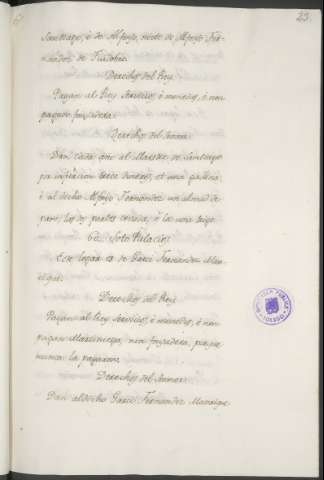 23.
Santiago, é de Alfonso, nieto de Alfonso Fer-
nandez de
Derechos del Rey.
Pagan al Rey servicios, é monedas, é non
pagan fonsadera.
Derechos del Sennor.
Dan cada que al Maestre de Santiago
por infurcion trece dineros, et una gallina,
é al dicho Alfonso Fernandez un almud de
pan, las dos partes cevada, é la una trigo.
62. Soto Palacio.
Este logar es de Garci Fernandez Man-
rique.
Derechos del Rey.
Pagan al Rey servicios, é monedas, é non
pagan Martiniega, nin fonsadera, por que
nunca la pagaron.
Derechos del Sennor.
Dan al dicho Garci Fernandez Manrique
BIBLIOTECA PUBLICA
TOLEDO